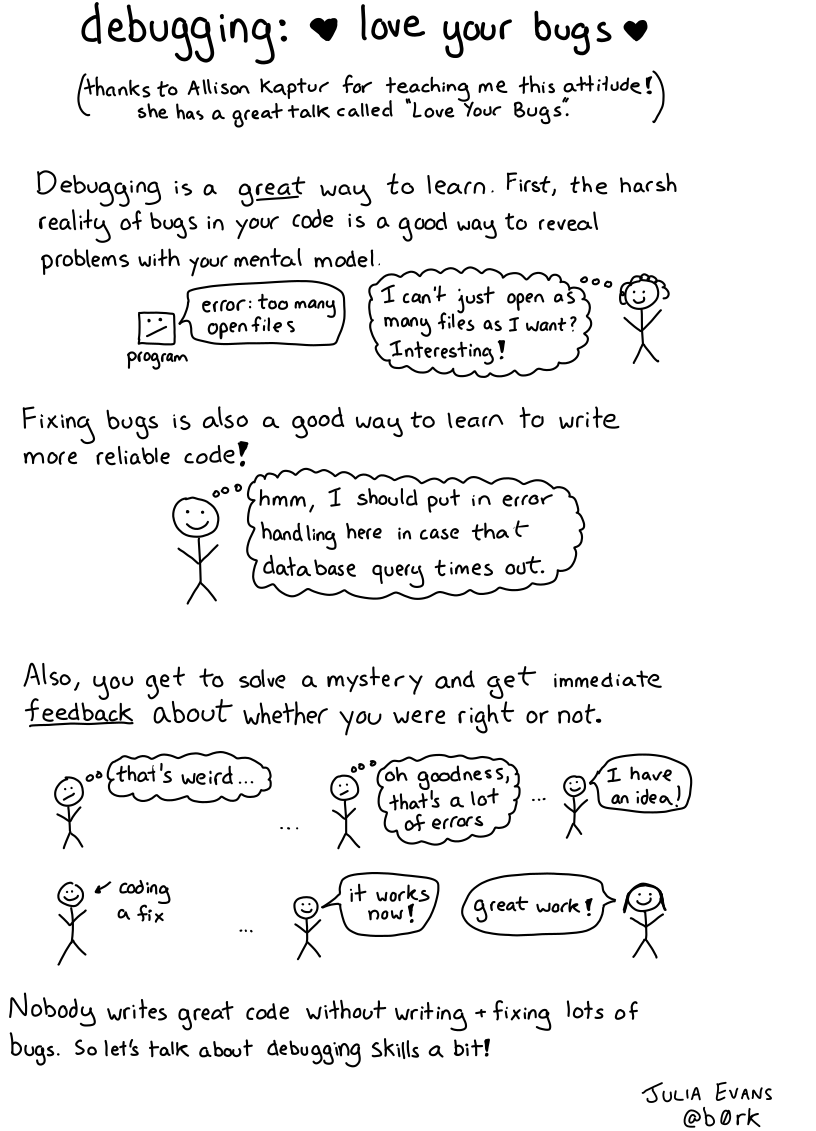 debugging: ♥ love your bugs ♥
(thanks to Allison Kaptur for teaching me this attitude!
she has a great talk called "Love Your Bugs".)
Debugging is a great way to learn. First, the harsh
reality of bugs in your code is a good way to reveal
problems with your mental model.
error: too many
open files
program
I can't just open as
many files as I want?
Interesting!
Fixing bugs is also a good way to learn to write
more reliable code!
hmm, I should put in error
handling here in case that
database query times out.
Also, you get to solve a mystery and get immediate
feedback about whether you were right or not.
that's weird...
...
oh goodness,
that's a lot
of errors
...
I have
an idea!
coding
a fix
...
it works
now!
great work!
Nobody writes great code without writing + fixing lots of
bugs. So let's talk about debugging skills a bit!
JULIA EVANS
@b0rk